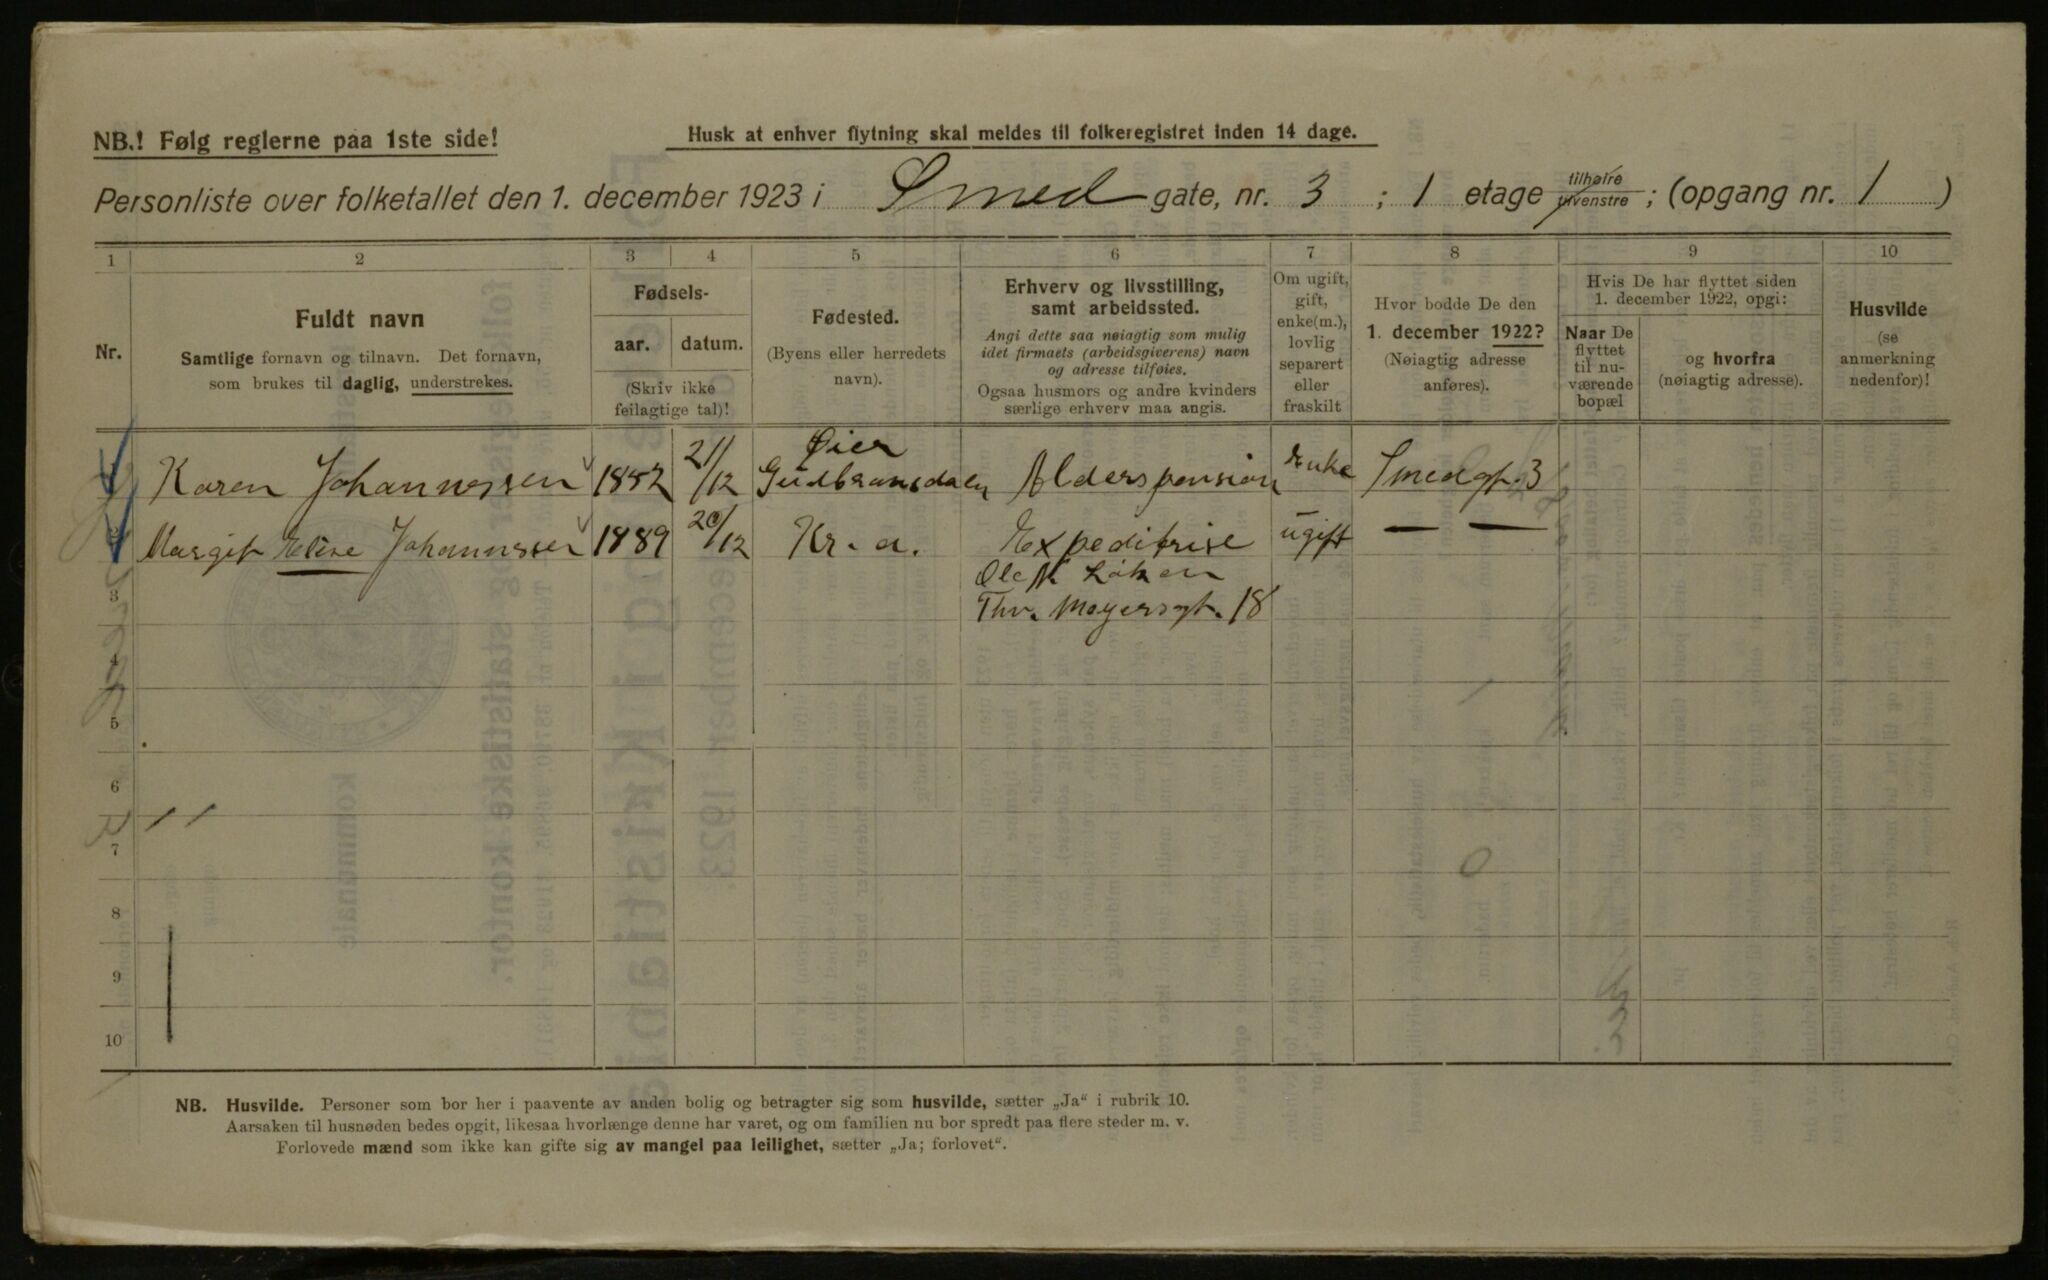 NB.! Følg reglerne paa 1ste side!
Husk at enhver flytning skal meldes til folkeregistret inden 14 dage.
Personliste over folketallet den 1. december 1923 i Smed gate, nr. 3 ; 1 etage tilhøire tilvenstre ; (opgang nr. 1 )
1 2 3 4 5 6 7 8 9 10
Nr.
Fuldt navn
Samtlige fornavn og tilnavn. Det fornavn,
som brukes til daglig, understrekes.
Fødsels-
aar. datum.
(Skriv ikke
feilagtige tal)!
Fødested.
(Byens eller herredets
navn).
Erhverv og livsstilling,
samt arbeidssted.
Angi dette saa nøiagtig som mulig
idet firmaets (arbeidsgiverens) navn
og adresse tilføies.
Ogsaa husmors og andre kvinders
særlige erhverv maa angis.
Om ugift,
gift,
enke(m.),
lovlig
separert
eller
fraskilt
Hvor bodde De den
1. december 1922?
(Nøiagtig adresse
anføres).
Hvis De har flyttet siden
1. december 1922, opgi:
Naar De
flyttet
til nu-
værende
bopæl
og hvorfra
(nøiagtig adresse).
Husvilde
(se
anmerkning
nedenfor)!
Karen Johannessen 1852 21/12 Øier Gudbransdalen Alderspension Enke Smedgt. 3
2 Margit Elise Johannessen 1889 20/12 Kr.a. Expeditrise ugift — —
Ole N Løken
3 Thv. Meyersgt. 18
4
5
6
7
8
9
10
NB. Husvilde. Personer som bor her i paavente av anden bolig og betragter sig som husvilde, sætter „Ja“ i rubrik 10.
Aarsaken til husnøden bedes opgit, likesaa hvorlænge denne har varet, og om familien nu bor spredt paa flere steder m. v.
Forlovede mænd som ikke kan gifte sig av mangel paa leilighet, sætter „Ja; forlovet“.